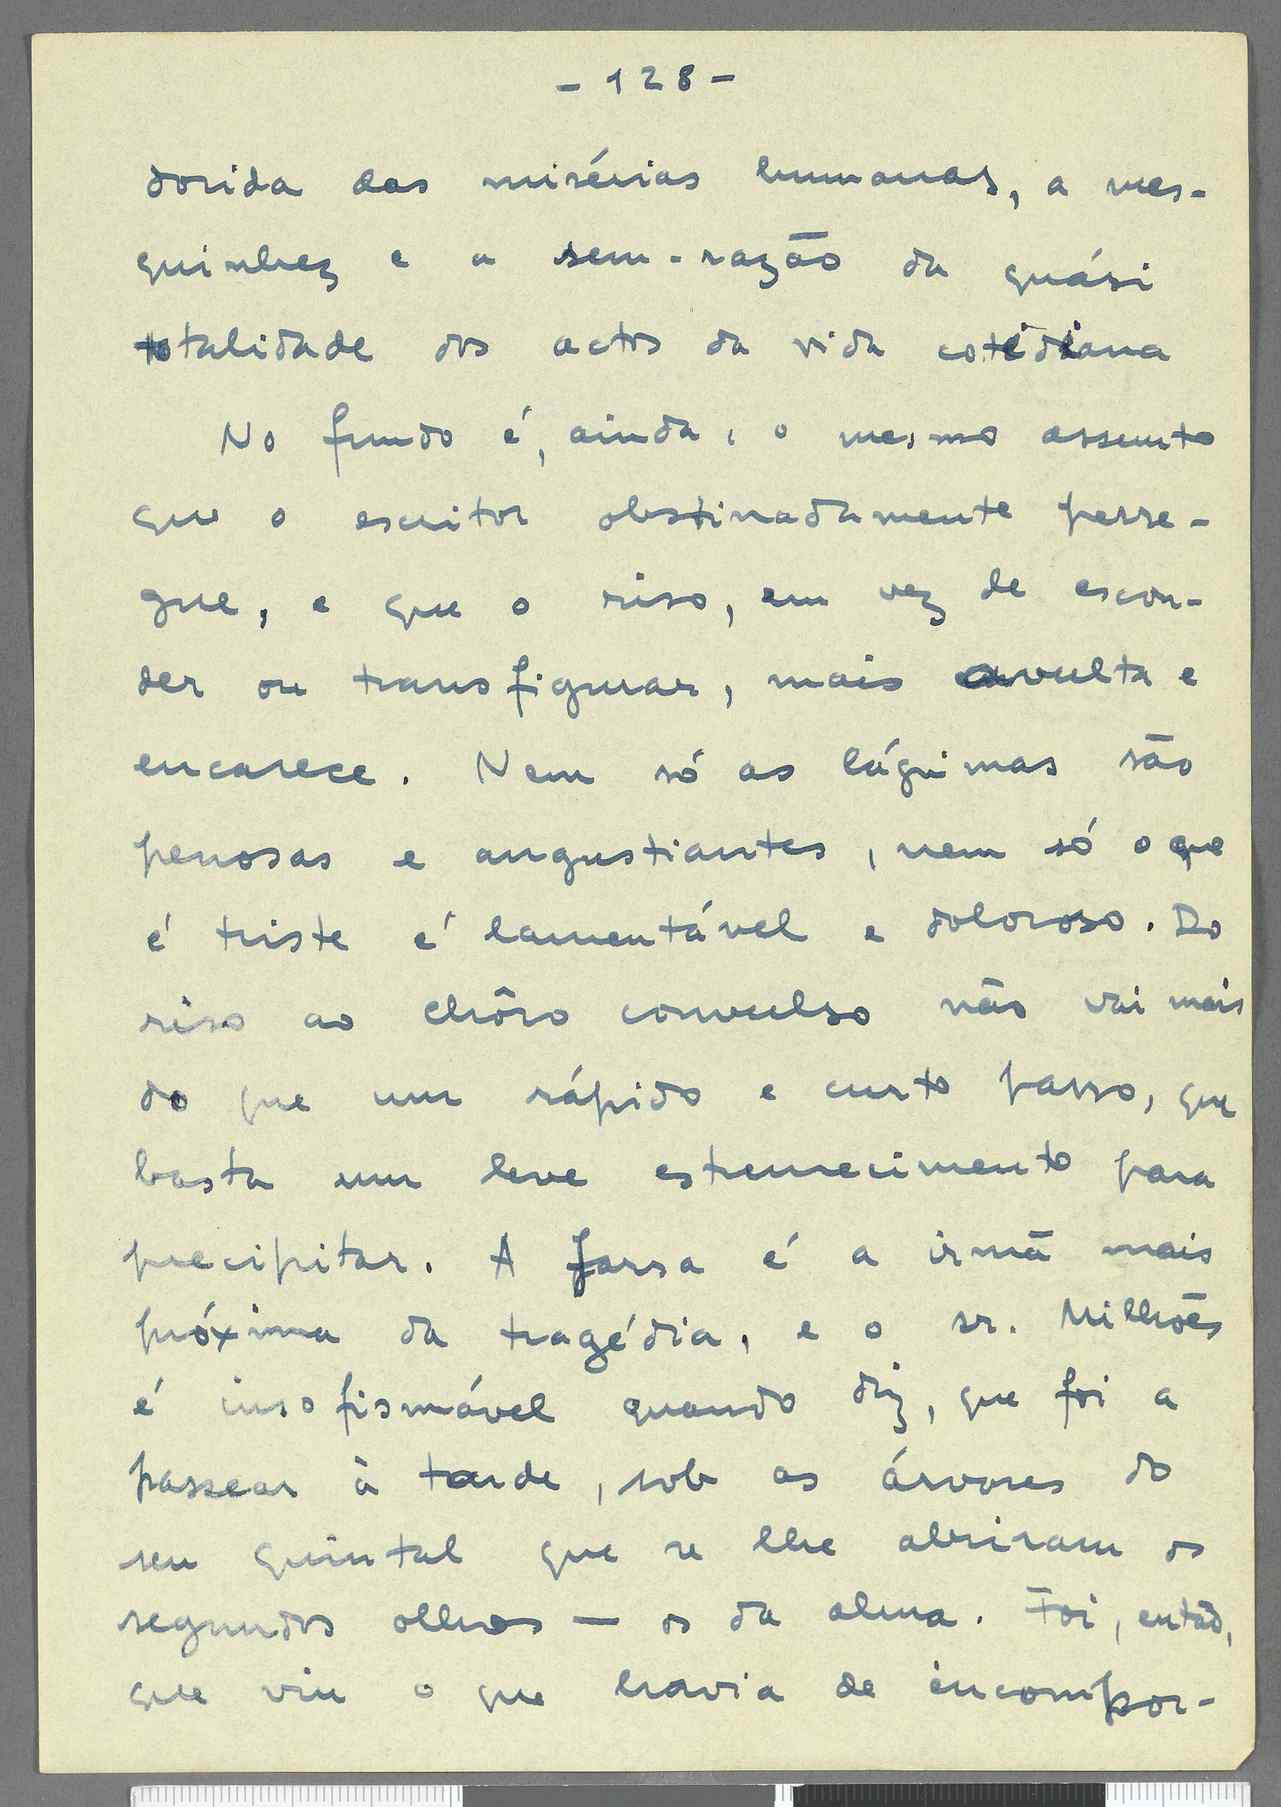 - 128 -
dorida das misérias humanas, a mes-
quinhez e a sem-razão da quási
totalidade dos actos da vida cotidiana
No fundo é, ainda, o mesmo assunto
que o escritor obstinadamente perse-
gue, e que o riso, em vez de escon-
der ou transfigurar, mais avulta e
encarece. Nem só as lágrimas são
penosas e angustiantes, nem só o que
é triste é lamentável e doloroso. Do
riso ao chôro convulso não vai mais
do que um rápido e curto passo, que
basta um leve estremecimento para
precipitar. A farsa é a irmã mais
próxima da tragédia, e o sr. Milhões
é insofismável quando diz, que foi a
passear à tarde, sob as árvores do
seu quintal que se lhe abriram os
segundos olhos — os da alma. Foi, então,
que viu o que havia de incompor-